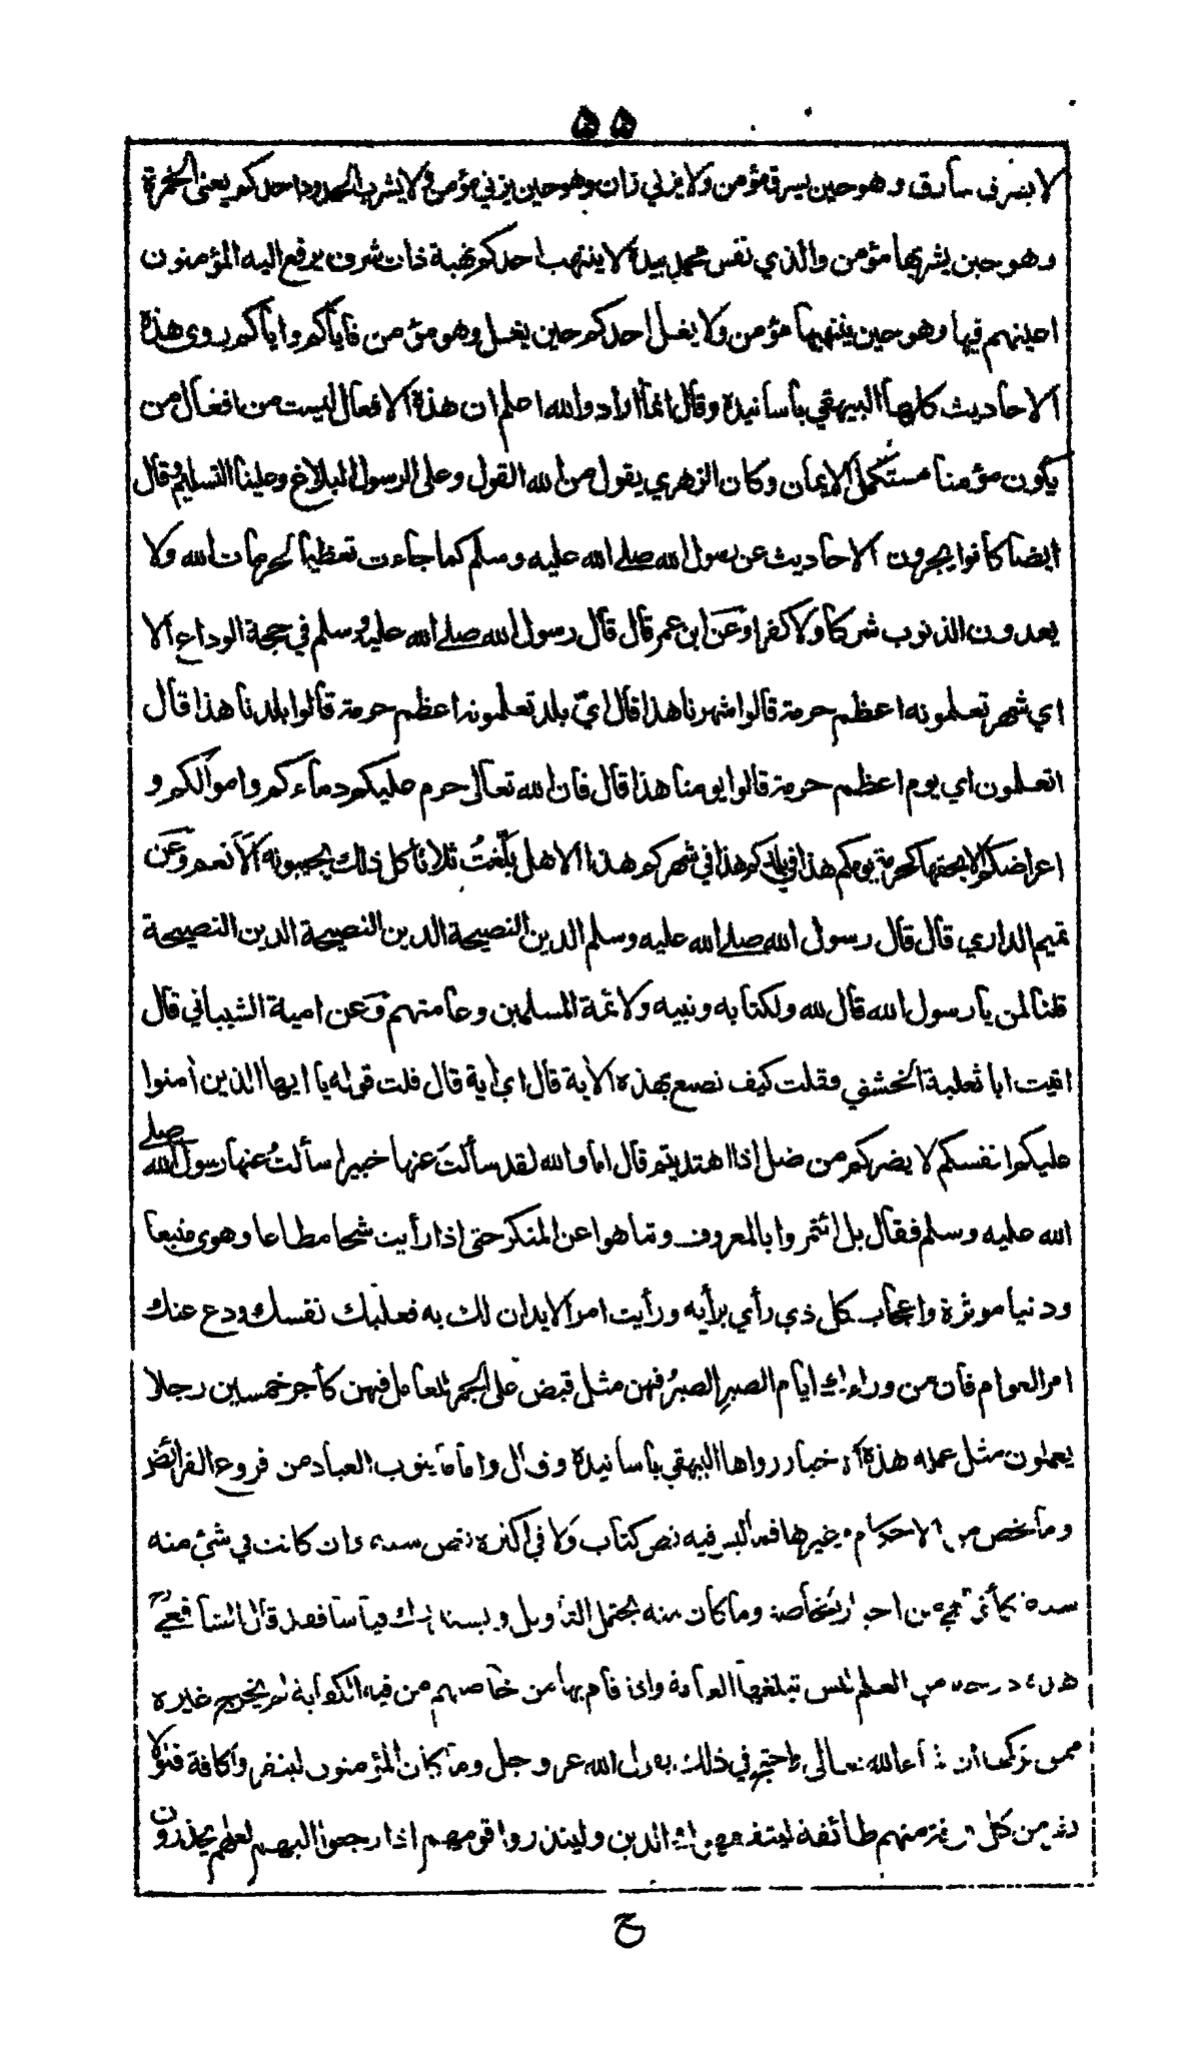 ۵۵
لا يسرق سارق وهو حين يسرق مؤمن ولا يزني زان وهو حين يزني مؤمن ولا يشرب الحدود احدكم يعنى الخمرة
وهو حين يشربها مؤمن والذي نفس محمد بيده لا ينتهب احدكم نهبة ذات شرف يرفع اليه المؤمنون
اعينهم فيها وهو حين ينتهبها مؤمن ولا يغل احدكم حين يغل وهو مؤمن فاياكم واياكم روى هذه
الاحاديث كلها البيهقي بأسانيده وقال انما اراد والله اعلم ان هذه الافعال ليست من افعال من
يكون مؤمنا مستكمل الايمان وكان الزهري يقول من الله القول وعلى الرسول البلاغ وعلينا التسليم وقال
ايضا كانوا يجرون الاحاديث عن رسول الله صلے الله عليه وسلم كما جاءت تعظيما لحرمات الله ولا
يعدون الذنوب شركا ولا كفرا وعن ابن عمر قال قال رسول الله صلے الله عليه وسلم في حجة الوداع الا
اي شهر تعلمونه اعظم حرمة قالوا شهرنا هذا قال ايّ بلد تعلمونه اعظم حرمة قالوا بلدنا هذا قال
اتعلمون اي يوم اعظم حرمة قالوا يومنا هذا قال فان الله تعالى حرم عليكم دماءكم واموالكم و
اعراضكم الا بحقها كحرمة يومكم هذا في بلدكم هذا في شهركم هذا الا هل بلّغتُ ثلاثا كل ذلك يجيبونه ألا نعم وعن
تميم الداري قال قال رسول الله صلے الله عليه وسلم الدين النصيحة الدين النصيحة الدين النصيحة
قلنا لمن يا رسول الله قال لله ولكتابه ونبيه ولائمة المسلمين وعامتهم وعن امية الشيباني قال
اتيت ابا ثعلبة الخشني فقلت كيف نصنع بهذه الاية قال اي اية قال قلت قوله يا ايها الذين امنوا
عليكم انفسكم لا يضركم من ضل اذا اهتديتم قال اما والله لقد سألتَ عنها خبيرا سألتُ عنها رسول الله صلے
الله عليه وسلم فقال بل ائتمروا بالمعروف وتناهوا عن المنكر حتى اذا رأيت شحا مطاعا وهوى متبعا
ودنيا موثرة واعجاب كل ذي رأي برأيه ورأيت امرا لا يدان لك به فعليك نفسك ودع عنك
امر العوام فان من ورائك ايام الصبرِ الصبرُ فيهن مثل قبض على الجمر للعامل فيهن كأجر خمسين رجلا
يعملون مثل عمله هذه الاخبار رواها البيهقي بأسانيده وقال واما ما ينوب العباد من فروع الفرائض
وما يخص من الاحكام وغيرها مما ليس فيه نص كتاب ولا في اكثره نص سنة وان كانت في شئ منه
سنة فانما هي من اخبار الخاصة وما كان منه يحتمل التأويل ويستدرك قياسا فقد قال الشافعيؒ
هذه درجة من العلم ليس تبلغها العامة واذا قام بها من خاصتهم من فيه الكفاية لم يخرج غيره
ممن تركها ان شاء الله تعالى واحتج في ذلك بقول الله عز وجل وما كان المؤمنون لينفروا كافة فلولا
نفر من كل فرقة منهم طائفة ليتفقهوا في الدين ولينذروا قومهم اذا رجعوا اليهم لعلهم يحذرون
ح